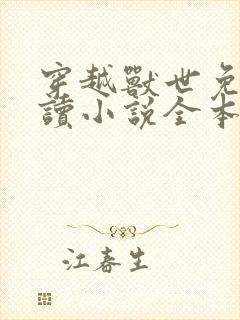 穿越獸世免
讀小說全本
江春生